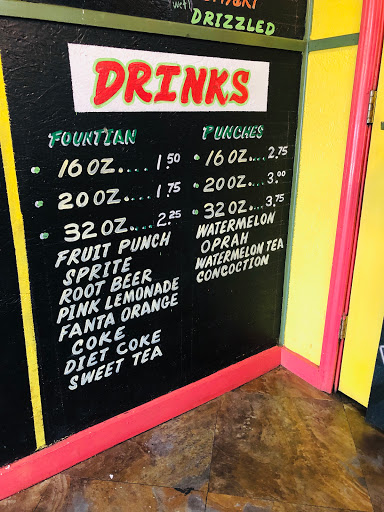 DRIZZLED
DRINKS
FOUNTIAN
16 OZ.... 1.50
20 OZ.... 1.75
32 OZ... 2.25
FRUIT PUNCH
SPRITE
ROOT BEER
PINK LEMONADE
FANTA ORANGE
COKE
DIET COKE
SWEET TEA
PUNCHES
16 OZ.... 2.75
20 OZ.... 3.00
32 OZ.... 3.75
WATERMELON
OPRAH
WATERMELON TEA
CONCOCTION